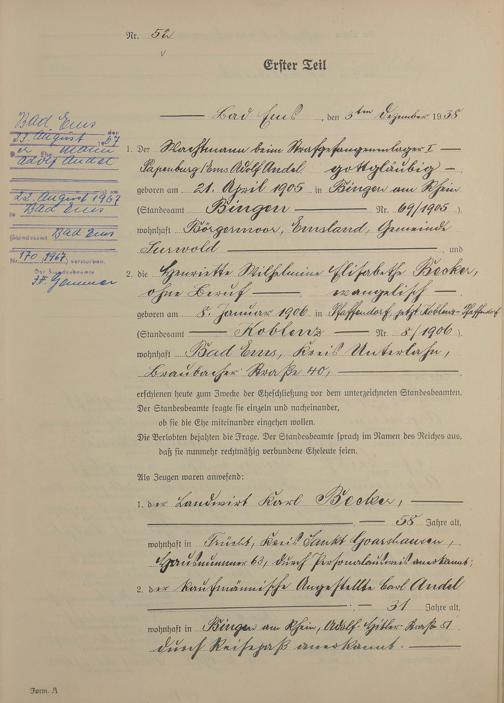 Nr. 56
Erster Teil
Bad Ems, den 3ten Dezember 1938
1. Der Wachtmann beim Strafgefangenenlager I
Papenburg/Ems Adolf Andel gottgläubig
geboren am 21. April 1905 in Bingen am Rhein
(Standesamt Bingen Nr. 69/1905).
wohnhaft Börgermoor, Emsland, Gemeinde
Surwold, und
2. die Henriette Wilhelmine Elisabethe Becker,
ohne Beruf evangelisch
geboren am 8. Januar 1906 in Pfaffendorf, jetzt Koblenz-Pfaffendorf
(Standesamt Koblenz Nr. 8/1906).
wohnhaft Bad Ems, Kreis Unterlahn,
Braubacher Straße 40,
erschienen heute zum Zwecke der Eheschließung vor dem unterzeichneten Standesbeamten.
Der Standesbeamte fragte sie einzeln und nacheinander,
ob sie die Ehe miteinander eingehen wollen.
Die Verlobten bejahten die Frage. Der Standesbeamte sprach im Namen des Reiches aus,
daß sie nunmehr rechtmäßig verbundene Eheleute seien.
Als Zeugen waren anwesend:
1. der Landwirt Karl Becker,
58 Jahre alt,
wohnhaft in Frücht, Kreis Sankt Goarshausen,
Hausnummer 63, durch Personalausweis anerkannt;
2. der kaufmännische Angestellte Carl Andel
31 Jahre alt,
wohnhaft in Bingen am Rhein, Adolf-Hitler-Straße 51
durch Reisepaß anerkannt.
Form. A
Bad Ems
den
23. August 67
Mann
Adolf Andel
22. August 1967
in Bad Ems
(Standesamt Bad Ems
Nr. 170/1967) verstorben.
Der Standesbeamte